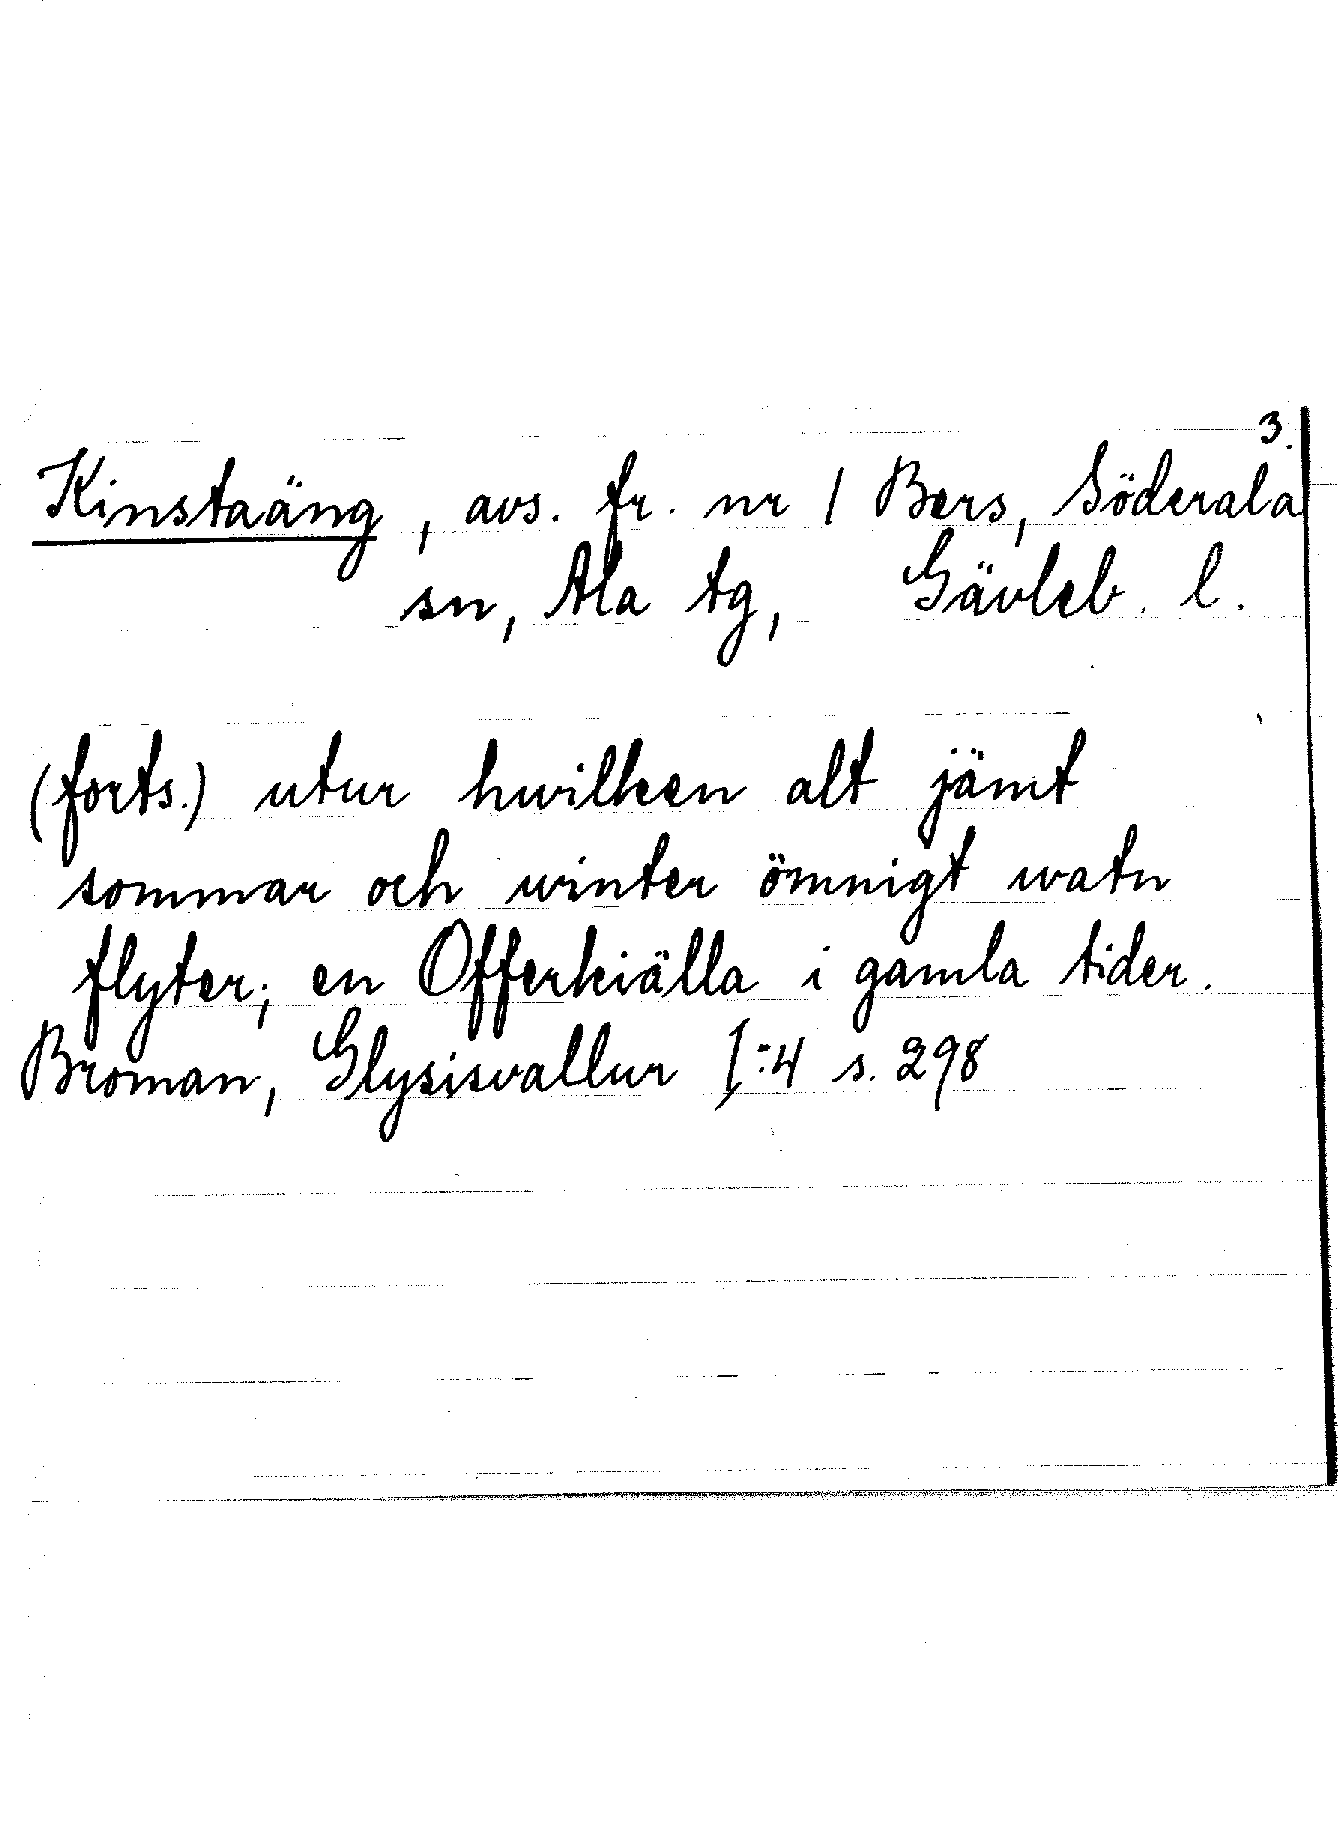 3.
Kinstaäng, avs. fr. nr 1 Bers, Söderala
sn, Ala tg, Gävleb. l.
(forts.) utur hwilken alt jämt
sommar och winter ömnigt watn
flyter; en Offerkiälla i gamla tider.
Broman, Glysisvallur I:4 s. 298